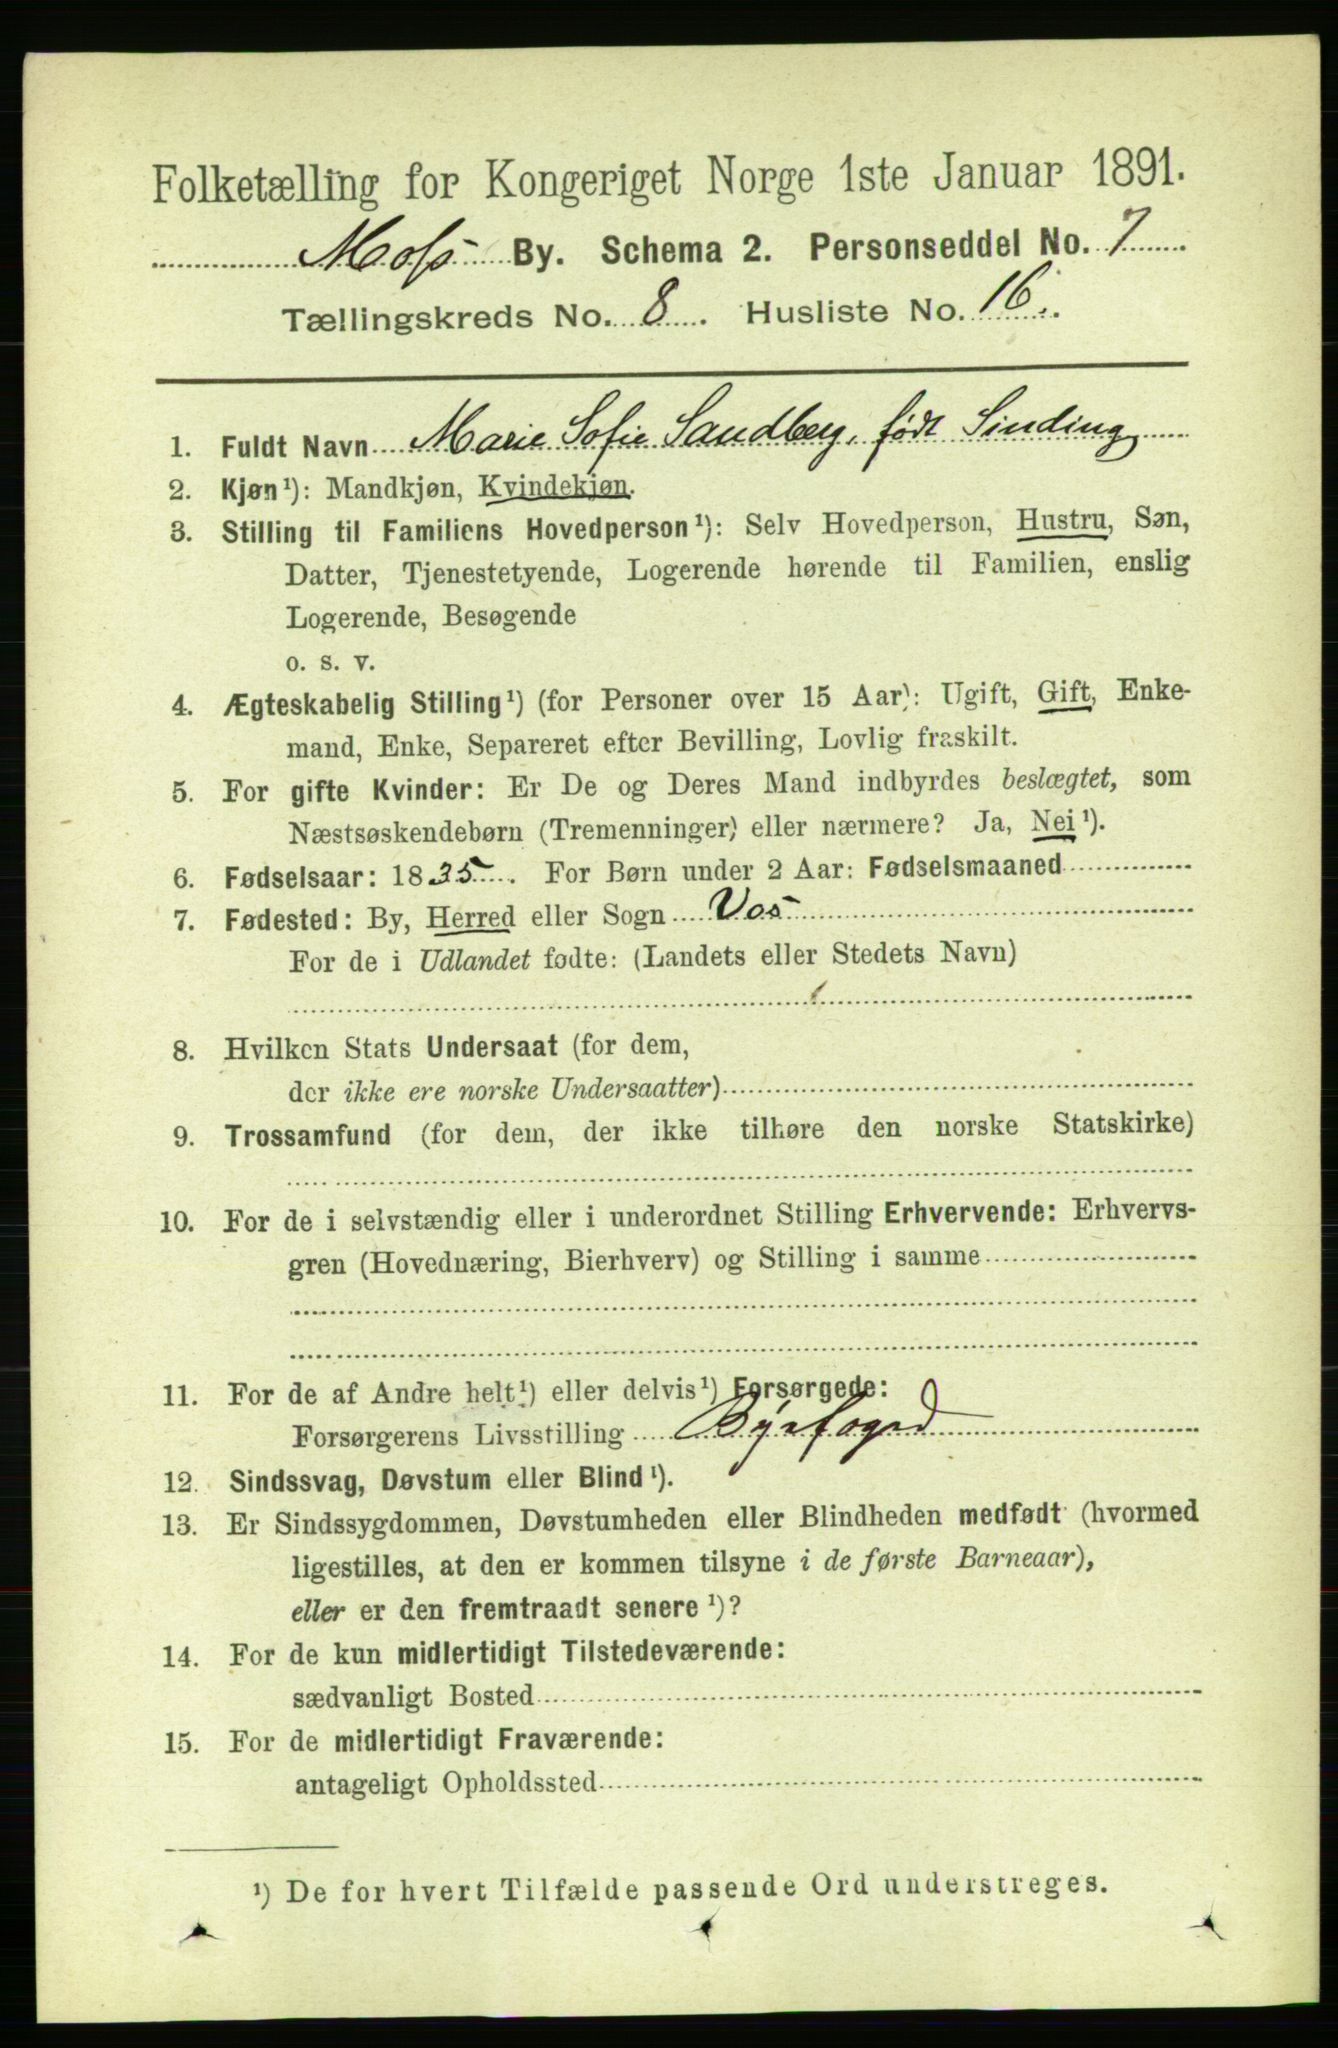 Folketælling for Kongeriget Norge 1ste Januar 1891.
Moss By. Schema 2. Personseddel No. 7
Tællingskreds No. 8. Husliste No. 16.
1. Fuldt Navn Marie Sofie Sandberg, født Sinding
2. Kjøn¹): Mandkjøn, Kvindekjøn.
3. Stilling til Familiens Hovedperson¹): Selv Hovedperson, Hustru, Søn,
Datter, Tjenestetyende, Logerende hørende til Familien, enslig
Logerende, Besøgende
o. s. v.
4. Ægteskabelig Stilling¹) (for Personer over 15 Aar): Ugift, Gift, Enke-
mand, Enke, Separeret efter Bevilling, Lovlig fraskilt.
5. For gifte Kvinder: Er De og Deres Mand indbyrdes beslægtet, som
Næstsøskendebørn (Tremenninger) eller nærmere? Ja, Nei¹).
6. Fødselsaar: 1835. For Børn under 2 Aar: Fødselsmaaned
7. Fødested: By, Herred eller Sogn Vos
For de i Udlandet fødte: (Landets eller Stedets Navn)
8. Hvilken Stats Undersaat (for dem,
der ikke ere norske Undersaatter)
9. Trossamfund (for dem, der ikke tilhøre den norske Statskirke)
10. For de i selvstændig eller i underordnet Stilling Erhvervende: Erhvervs-
gren (Hovednæring, Bierhverv) og Stilling i samme
11. For de af Andre helt¹) eller delvis¹) Forsørgede:
Forsørgerens Livsstilling Byefoged
12. Sindssvag, Døvstum eller Blind¹).
13. Er Sindssygdommen, Døvstumheden eller Blindheden medfødt (hvormed
ligestilles, at den er kommen tilsyne i de første Barneaar),
eller er den fremtraadt senere¹)?
14. For de kun midlertidigt Tilstedeværende:
sædvanligt Bosted
15. For de midlertidigt Fraværende:
antageligt Opholdssted
¹) De for hvert Tilfælde passende Ord understreges.